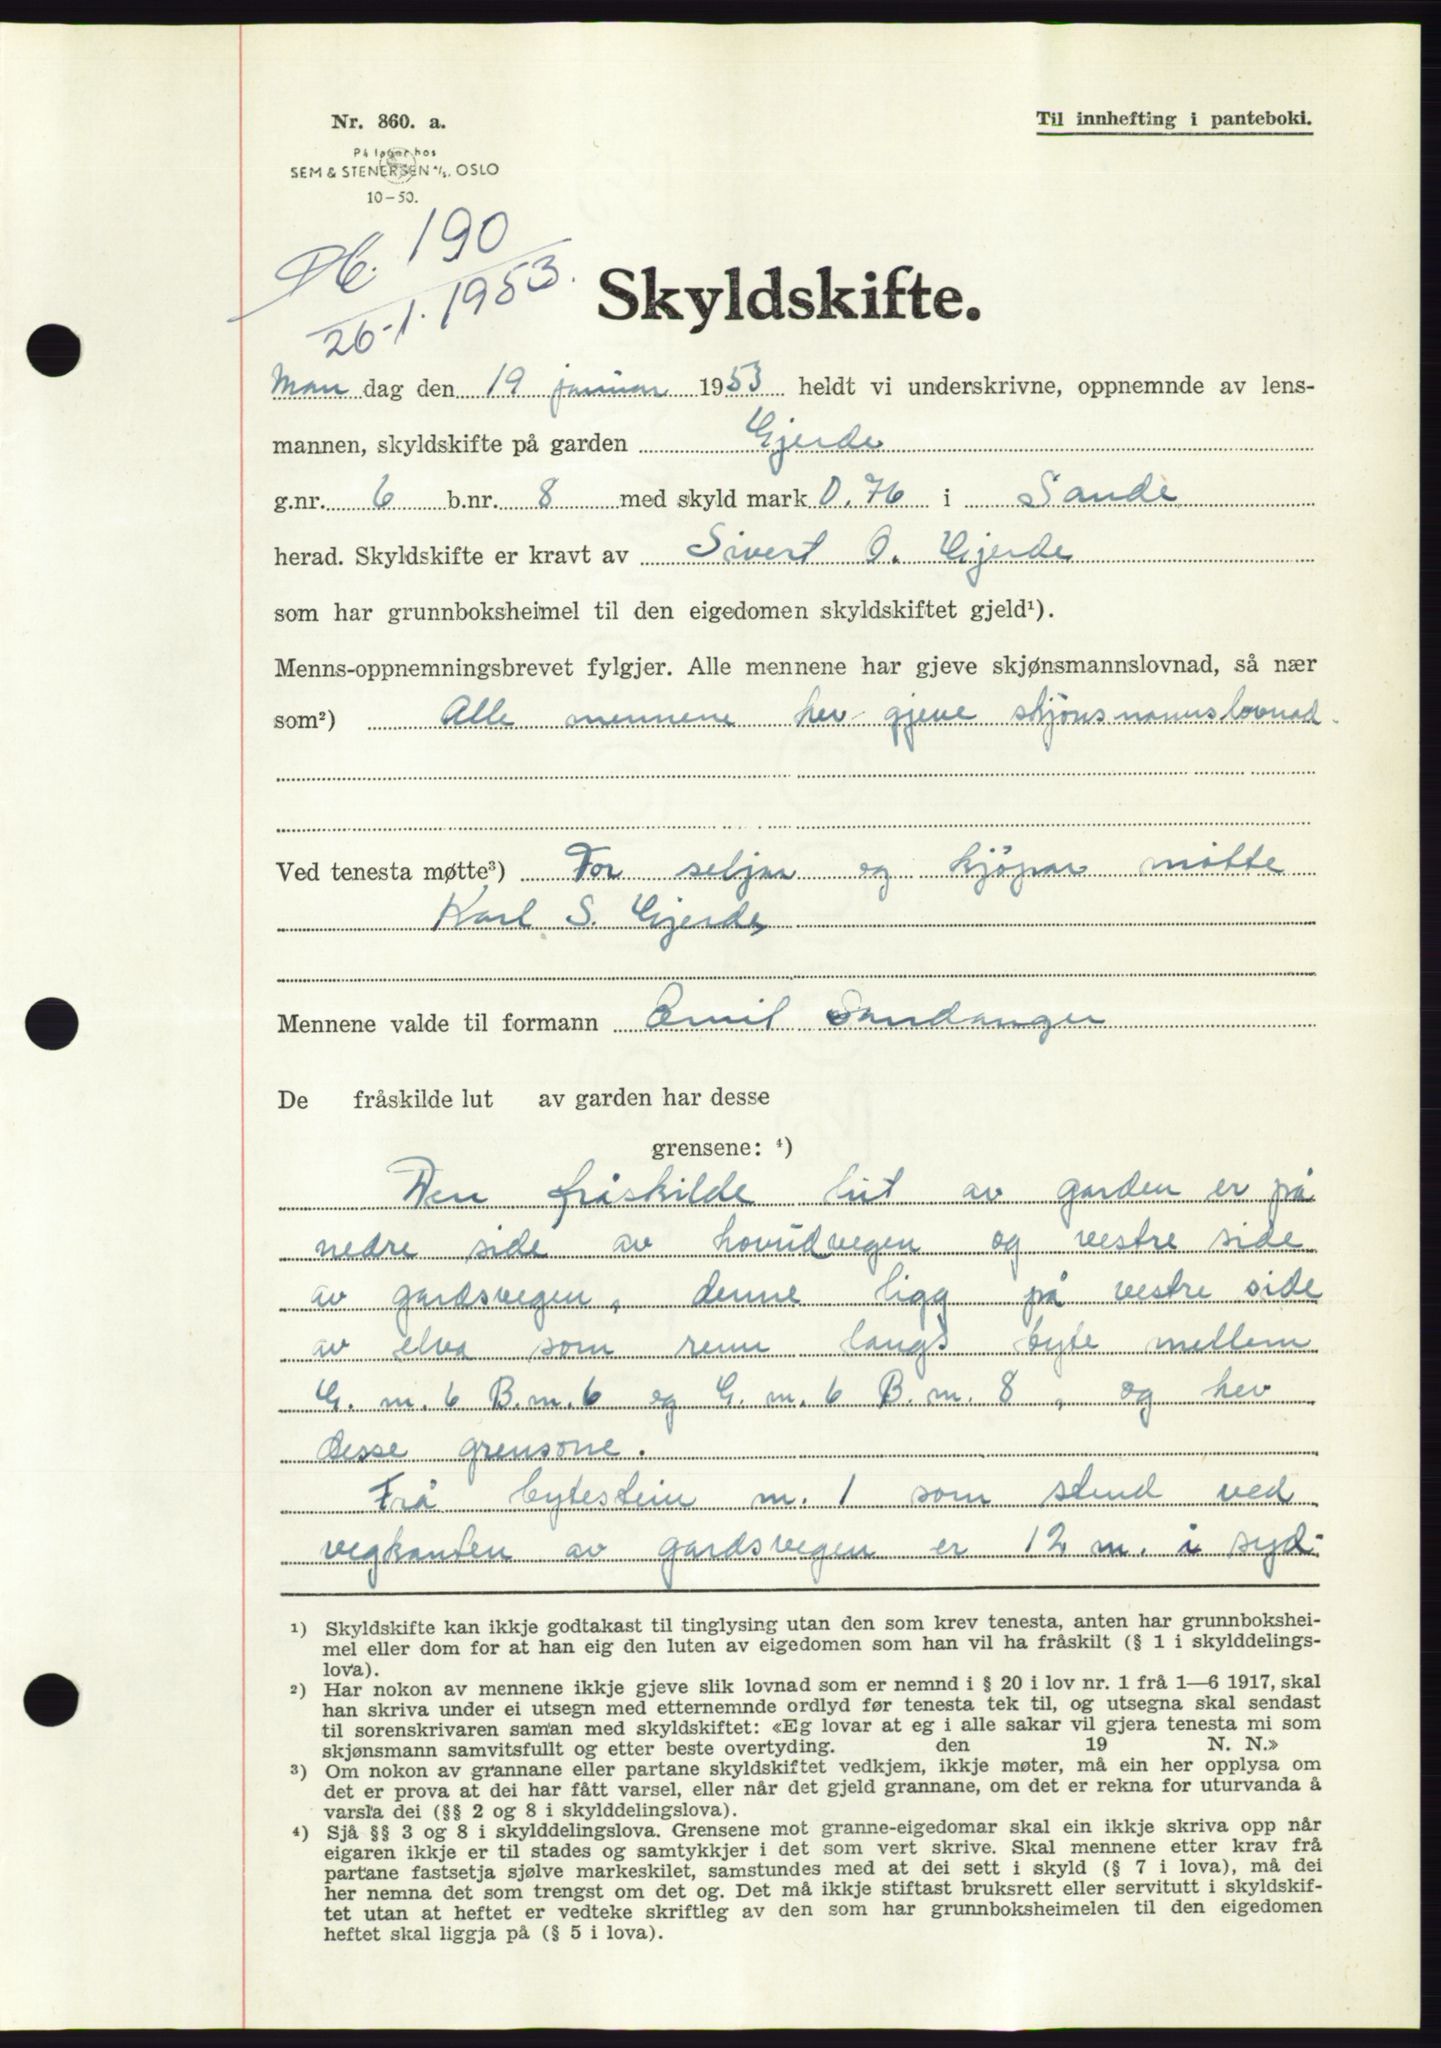 Nr. 860. a.
Til innhefting i panteboki.
På lager hos
SEM & STENERSEN A/S, OSLO
10-50.
Db. 190
26-1. 1953.
Skyldskifte.
Man dag den 19 januar 1953 heldt vi underskrivne, oppnemnde av lens-
mannen, skyldskifte på garden Gjerde
g.nr. 6 b.nr. 8 med skyld mark 0.76 i Sande
herad. Skyldskifte er kravt av Sivert O. Gjerde
som har grunnboksheimel til den eigedomen skyldskiftet gjeld¹).
Menns-oppnemningsbrevet fylgjer. Alle mennene har gjeve skjønsmannslovnad, så nær
som²) Alle mennene hev gjeve skjönsmannslovnad.
Ved tenesta møtte³) For seljar og kjöpar mötte
Karl S. Gjerde
Mennene valde til formann Emil Sandanger
De fråskilde lut av garden har desse
grensene: ⁴)
Den fråskilde lut av garden er på
nedre side av hovudvegen og vestre side
av gardsvegen, denne ligg på vestre side
av elva som renn langs byte mellem
G. nr. 6 B. nr. 6 og G. nr. 6 B. nr. 8, og hev
desse grensone.
Frå bytestein nr. 1 som stend ved
vegkanten av gardsvegen er 12 m. i syd-
¹) Skyldskifte kan ikkje godtakast til tinglysing utan den som krev tenesta, anten har grunnbokshei-
mel eller dom for at han eig den luten av eigedomen som han vil ha fråskilt (§ 1 i skylddelings-
lova).
²) Har nokon av mennene ikkje gjeve slik lovnad som er nemnd i § 20 i lov nr. 1 frå 1—6 1917, skal
han skriva under ei utsegn med etternemnde ordlyd før tenesta tek til, og utsegna skal sendast
til sorenskrivaren saman med skyldskiftet: «Eg lovar at eg i alle sakar vil gjera tenesta mi som
skjønsmann samvitsfullt og etter beste overtyding. den 19 N. N.»
³) Om nokon av grannane eller partane skyldskiftet vedkjem, ikkje møter, må ein her opplysa om
det er prova at dei har fått varsel, eller når det gjeld grannane, om det er rekna for uturvanda å
varsla dei (§§ 2 og 8 i skylddelingslova).
⁴) Sjå §§ 3 og 8 i skylddelingslova. Grensene mot granne-eigedomar skal ein ikkje skriva opp når
eigaren ikkje er til stades og samtykkjer i det som vert skrive. Skal mennene etter krav frå
partane fastsetja sjølve markeskilet, samstundes med at dei sett i skyld (§ 7 i lova), må dei
her nemna det som trengst om det og. Det må ikkje stiftast bruksrett eller servitutt i skyldskif-
tet utan at heftet er vedteke skriftleg av den som har grunnboksheimelen til den eigedomen
heftet skal liggja på (§ 5 i lova).